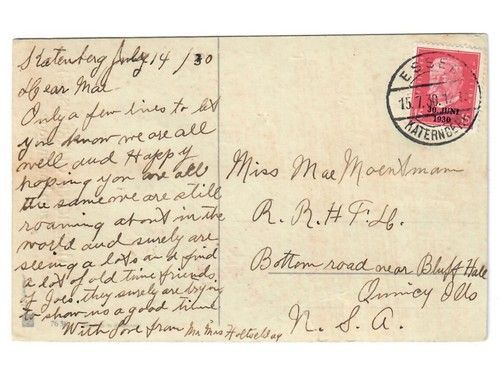 Katenberg July 14/30
Dear Mae
Only a few lines to let
you know we are all
well and Happy
hoping you are all
the same we are still
roaming about in the
world and surely are
seeing a lots and find
a lot of old time friends
of Joes. they surely are trying
to show us a good time
With Love from Mr Mrs
Miss Mae Moentmann
R. R.
Bottom road near Bluff Hall
Quincy Ills
N. S. A.
ESSEN
15.7.30.
KATERNBERG
30. JUNI
1930